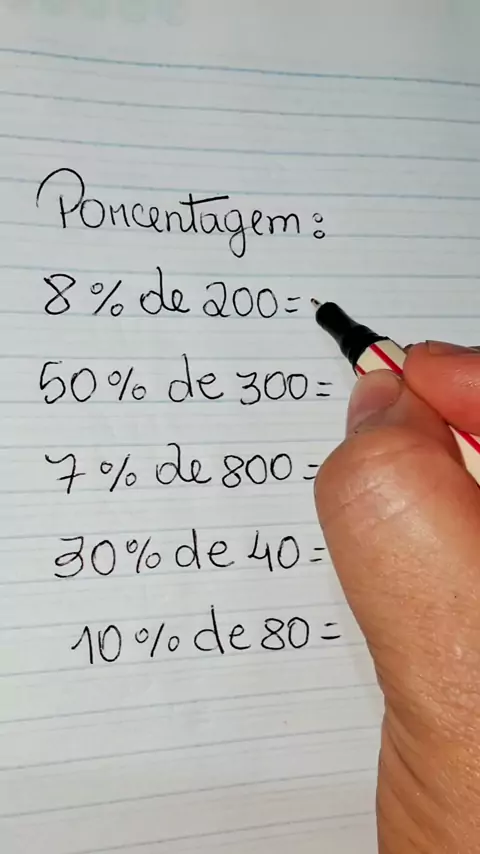 Porcentagem:
8% de 200=
50% de 300=
7% de 800=
30% de 40=
10% de 80=